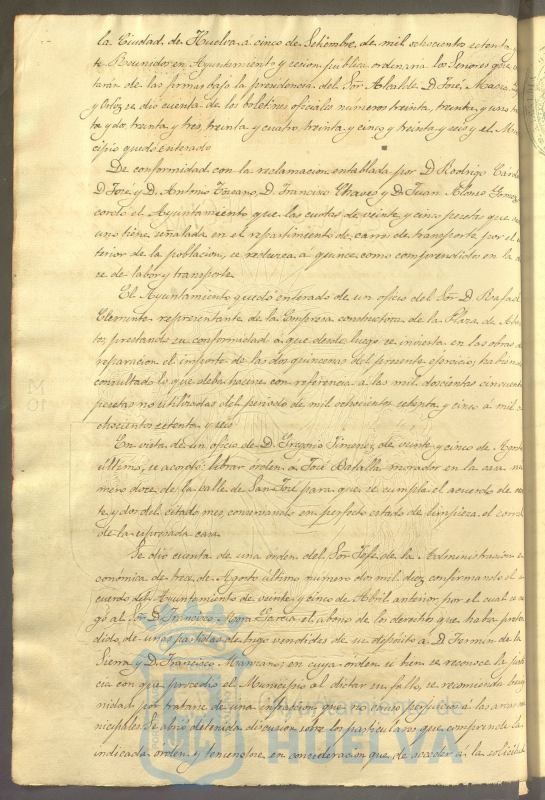 la Ciudad de Huelva a cinco de Setiembre de mil ochocientos setenta y
te Reunidos en Ayuntamiento y sesion publica ordinaria los Señores que
tarán de las firmas bajo la presidencia del Sor Alcalde D. José Maria
y se dió cuenta de los boletines oficiales números treinta, treinta y uno, tre
ta y dos, treinta y tres, treinta y cuatro, treinta y cinco y treinta y seis y el Mu
cipio quedó enterado
De conformidad con la reclamacion entablada por D. Rodrigo
D. José y D. Antonio D. Francisco Chaves y D. Juan Alonso Gomez
cordó el Ayuntamiento que las cuotas de veinte y cinco pesetas que
uno tiene señalada en el repartimiento de carros de transporte por el
terior de la poblacion, se reduzca a quince como comprendidos en la
se de labor y transporte
El Ayuntamiento quedó enterado de un oficio del Sor D. Rafael
Clemente representante de la Empresa constructora de la Plaza de Aba
tos, prestando su conformidad a que desde luego se invierta en las obras de
reparacion el importe de las dos quincenas del presente ejercicio, habiendo
consultado lo que deba hacerse con referencia a las mil doscientas cincuenta
pesetas no utilizadas del periodo de mil ochocientos setenta y cinco á mil o
chocientos setenta y seis
En vista de un oficio de D. Gregorio Jimenez, de veinte y cinco de Agosto
último, se acordó: librar orden a José Batalla morador en la casa nu
mero doce de la calle de San José para que se cumpla el acuerdo de
te y dos del citado mes, conservando en perfecto estado de limpieza el corral
de la espresada casa.
Se dió cuenta de una orden del Sor Jefe de la Administracion E
conómica de trece de Agosto último numero dos mil diez confirmando el a
cuerdo del Ayuntamiento de veinte y cinco de Abril anterior por el cual se
gó al Sor D. Francisco Garcia el abono de los derechos que había
dido de unas partidas de trigo vendidas de su depósito á D. Fermin de la
Sierra y D. Francisco Manzano, en cuya orden si bien se reconoce la justi
cia con que procedió el Municipio al dictar su fallo, se recomienda benig
nidad por tratarse de una infraccion que no causó perjuicios á las arcas mu
nicipales. Se abrió detenida discusion sobre los particulares que comprende la
indicada orden y teniendose en consideracion que de acceder á la solicitud
HUELVA